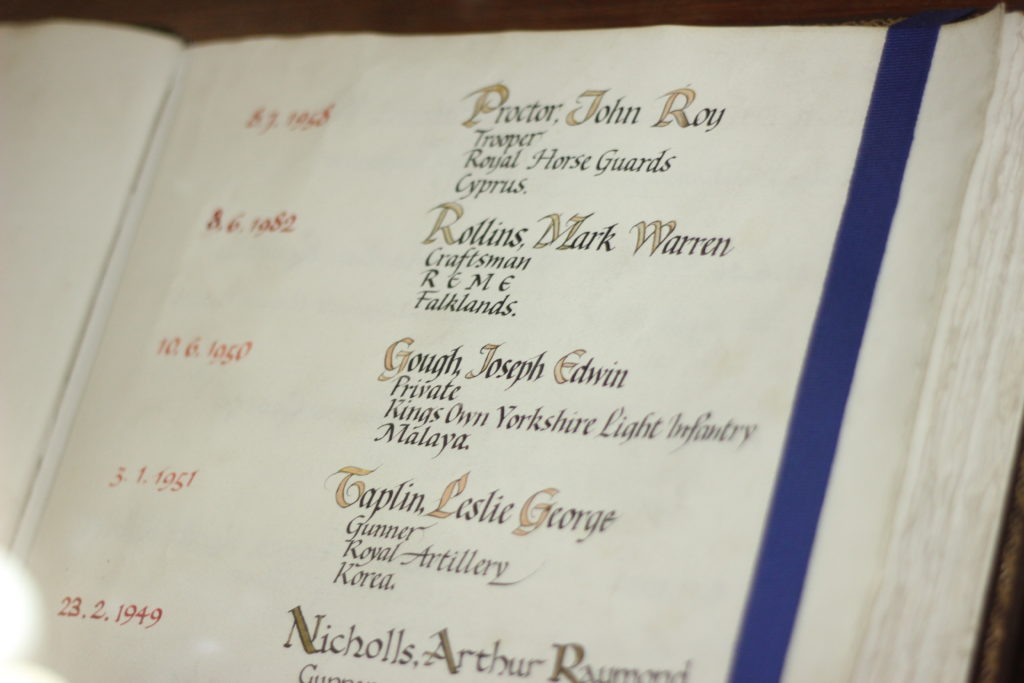 8.7.1958 Proctor, John Roy
Trooper
Royal Horse Guards
Cyprus.
8.6.1982 Rollins, Mark Warren
Craftsman
R E M E
Falklands.
10.6.1950 Gough, Joseph Edwin
Private
Kings Own Yorkshire Light Infantry
Malaya.
3.1.1951 Taplin, Leslie George
Gunner
Royal Artillery
Korea.
23.2.1949 Nicholls, Arthur Raymond
Gunner